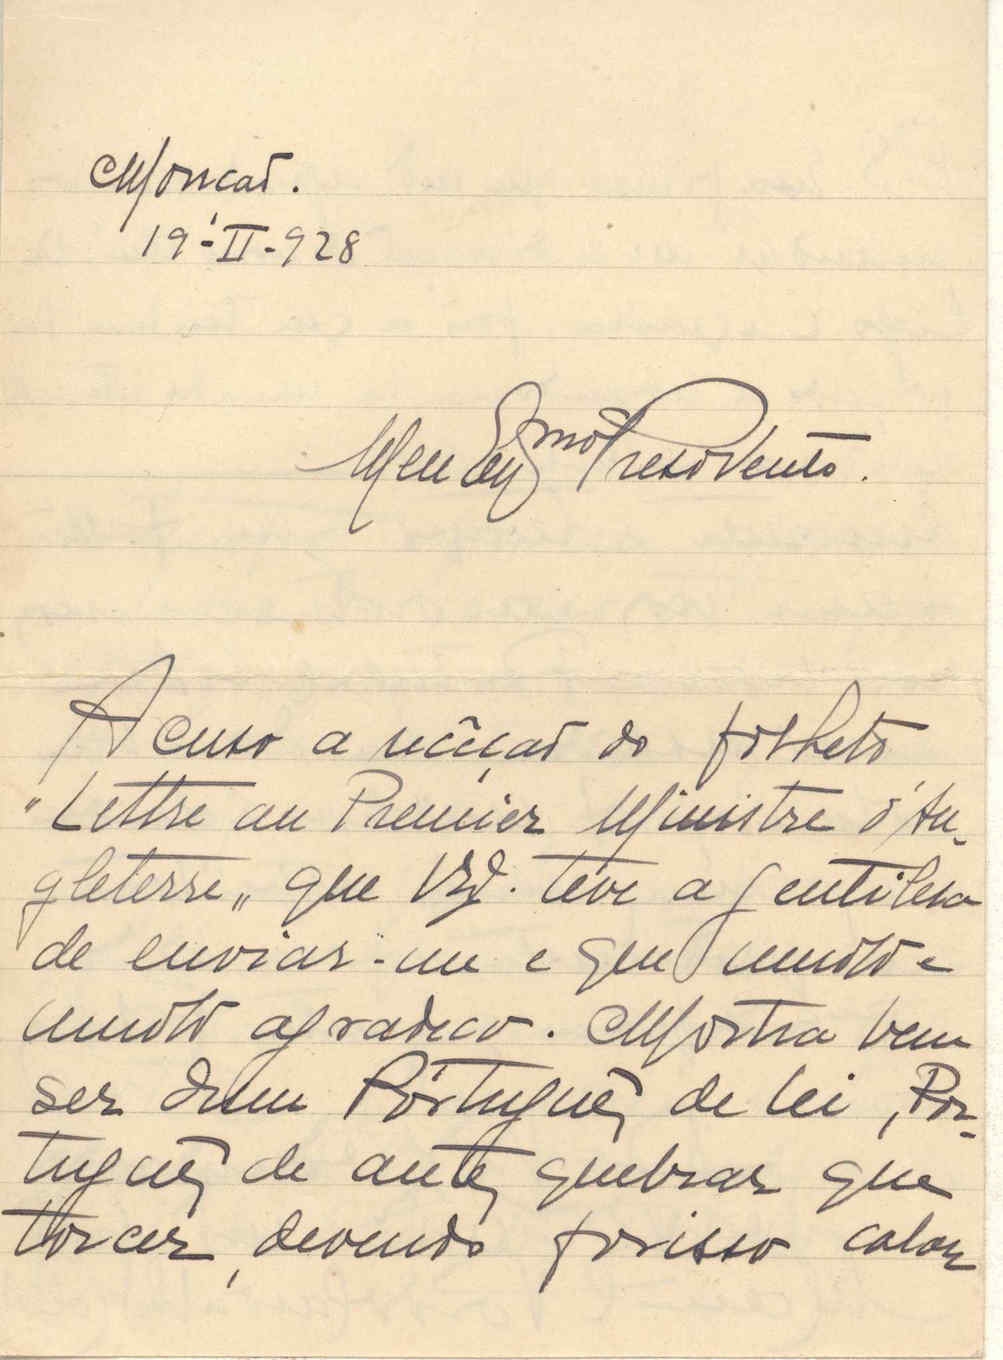 Monção.
19-II-928
Meu Exmo Presidente.
Acuso a receção do folheto
"Lettre au Premier Ministre d'An-
gleterre" que V. Exª. teve a gentilesa
de enviar-me e que muito e
muito agradeço. Mostra bem
ser dum Português de lei, Por-
tuguês de antes quebrar que
torcer, devendo porisso calar